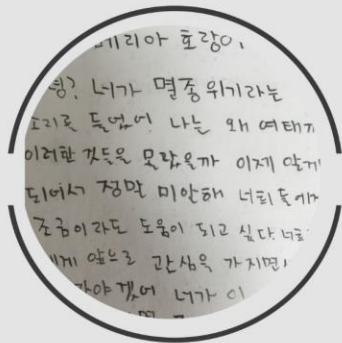 메리아 호랑이
녕? 너가 멸종위기라는
소리를 들었어 나는 왜 여태까
이러한 것들을 몰랐을까 이제 알게
되어서 정말 미안해 너희들에게
조금이라도 도움이 되고 싶다. 너희
에게 앞으로 관심을 가지면,
가야겠어 너가 이